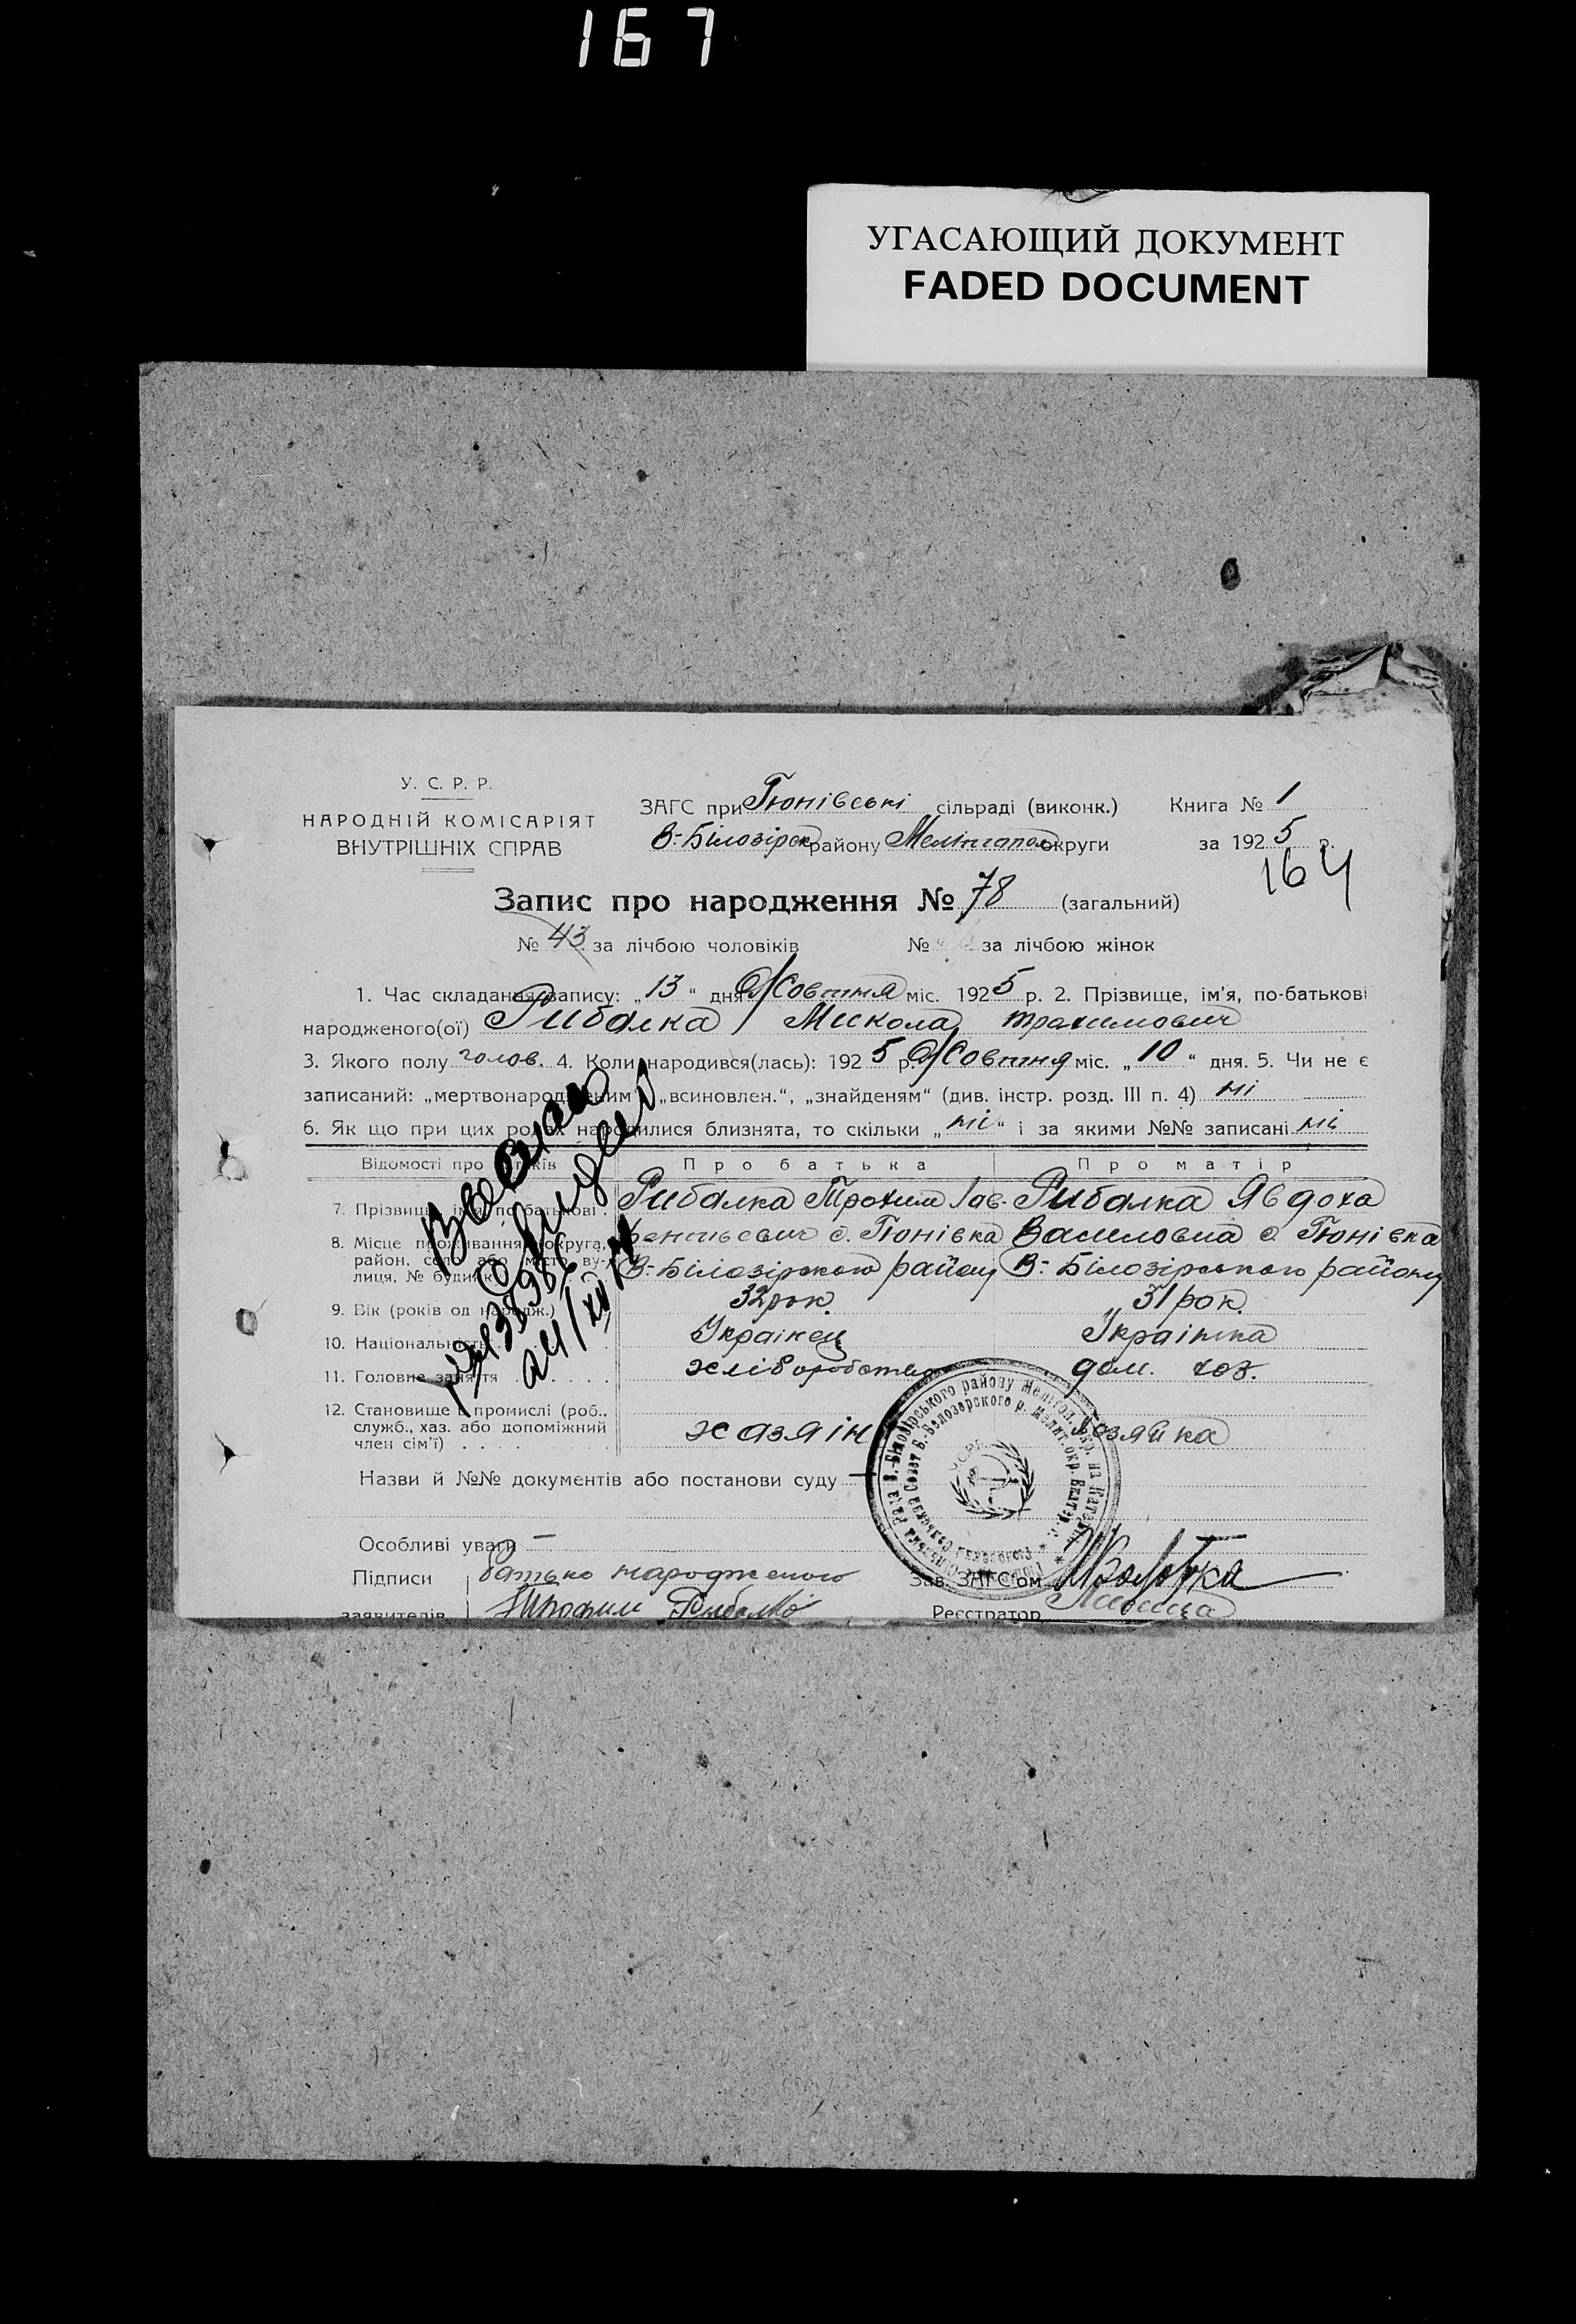 167
УГАСАЮЩИЙ ДОКУМЕНТ
FADED DOCUMENT
У. С. Р. Р.
НАРОДНІЙ КОМІСАРІЯТ
ВНУТРІШНІХ СПРАВ
ЗАГС при Гюнівські сільраді (виконк.)
В-Білозірск району Мелітопол округи
Книга № 1
за 1925 р.
164
Запис про народження № 78 (загальний)
№ 43 за лічбою чоловіків № за лічбою жінок
1. Час складання запису: „13“ дня Жовтня міс. 1925 р. 2. Прізвище, ім'я, по-батькові
народженого(ої) Рибалка Микола Трохимович
3. Якого полу чолов. 4. Коли народився(лась): 1925 р. Жовтня міс. „10“ дня. 5. Чи не є
записаний: „мертвонародженим“, „всиновлен.“, „знайденям“ (див. інстр. розд. III п. 4) ні
6. Як що при цих родах народилися близнята, то скільки „ні“ і за якими №№ записані ні
Відомості про батьків Про батька Про матір
7. Прізвище, ім'я, по батькові Рибалка Трохим Лав- Рибалка Явдоха
8. Місце проживання: округа, рентьевич с. Гюнівка Василовна с. Гюнівка
район, село або місто ву- В-Білозірского району В-Білозірського району
лиця, № будинк.
9. Вік (років од народж.) 32 рок. 31 рок.
10. Національність Українец Українка
11. Головне заняття хлібороботва дом. хоз.
12. Становище в промислі (роб.,
служб., хаз. або допоміжний хазяін хозяйка
член сім'ї)
Назви й №№ документів або постанови суду —
Особливі уваги —
Підписи батько народженого Зав. ЗАГС'ом
заявителів Трофим Рыбалко Реєстратор